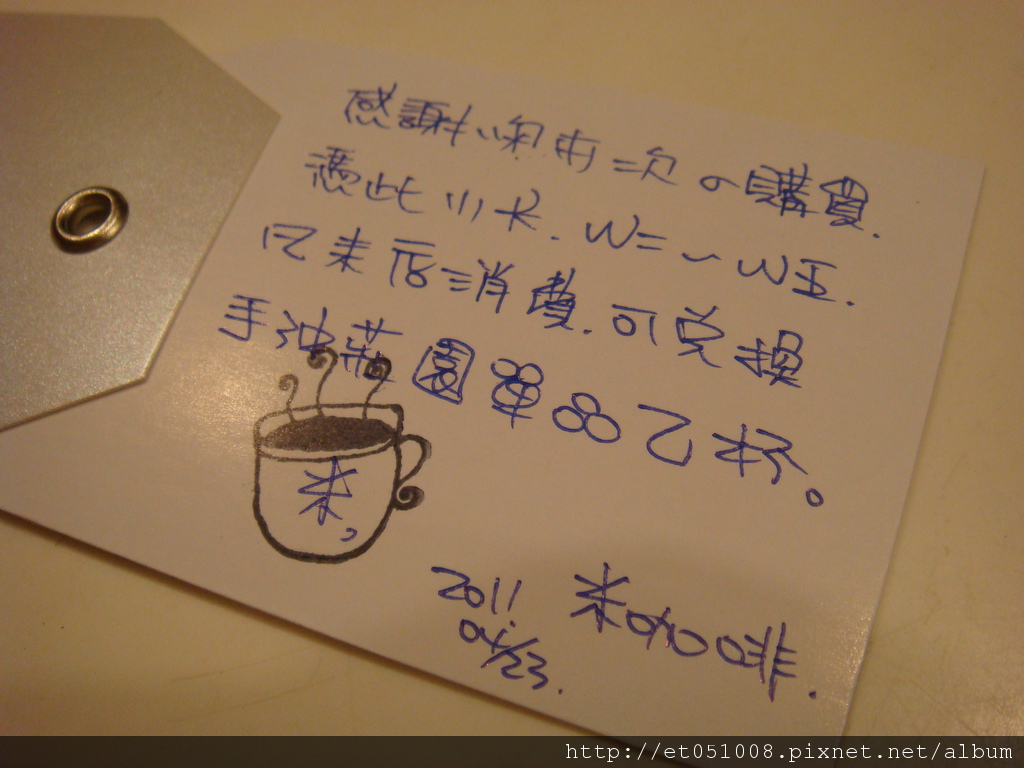 感謝您兩次的購買.
憑此小卡. W二~W五.
只來店消費.可兌換
手沖莊園單品乙杯。
米,
2011 米咖啡.
04/23.
http://et051008.pixnet.net/album